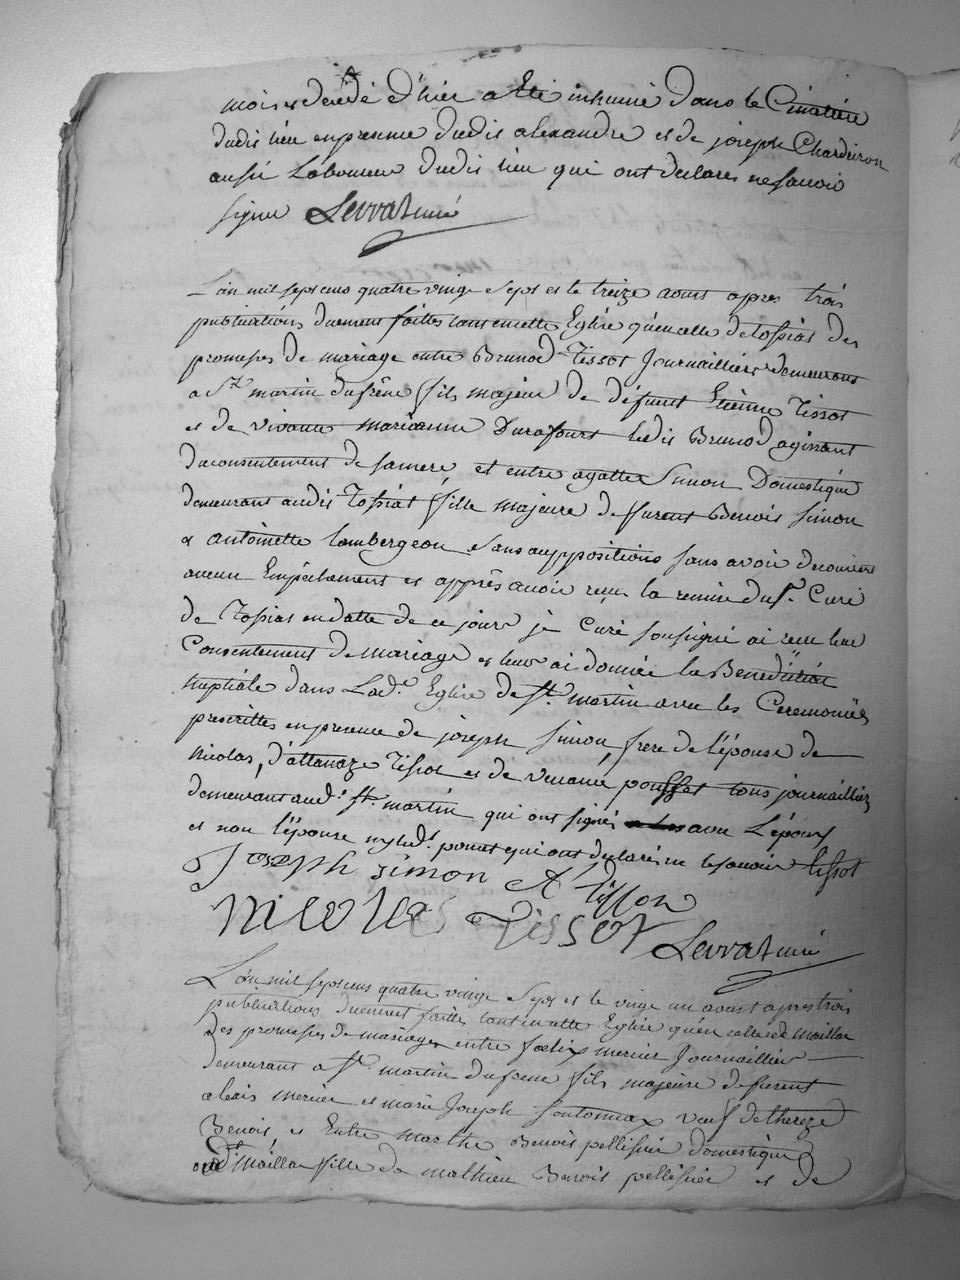 mois decédé d'hier a Eté inhumé Dans le Cimetiere
dudit lieu en presence dudit alexandre et de joseph Charderon
aussi Laboureur dudit lieu qui ont declares ne savoir
signer Levrat curé
L'an mil sept cens quatre vingt Sept et le treize aoust apres trois
publications duement faittes tant en cette Eglise qu'en celle de tossiat des
promesses de mariage entre Bruno Tissot Journaillier demeurant
a St martin du frêne fils majeur de défunt Etienne Tissot
et de vivante marianne Durafourt ledit Bruno agissant
du consentement de sa mere, et entre agatte Simon Domestique
demeurant audit Tossiat fille majeure de furent Benois Simon
et antoinette Lambergeon Sans oppositions sans avoir decouvert
aucun Empechement et apprès avoir reçu la remise du Sr. Curé
de Tossiat en datte de ce jour je Curé soussigné ai reçu leur
Consentement de mariage et leur ai donnée la Benediction
nuptiale dans Lad.e Eglise de St. martin avec les Ceremonies
prescrittes en presence de joseph Simon frere de l'épouse de
Nicolas, d'attanaze Tissot et de venance pousset tous journailliers
demeurant aud.t St. martin qui ont signés avec L'époux
et non l'épouse ny led.t pousset qui ont declarés ne le savoir tissot
Joseph simon A tisson
nicolas Tissot Levrat curé
L'an mil sept cens quatre vingt Sept et le vingt un aoust apres trois
publications duement faittes tant en cette Eglise qu'en celle de maillat
Des promesses de mariages entre foelix mercier Journaillier
demeurant a St. martin du frene fils majeure de furent
alexis mercier et marie Joseph fontonnax veuf de thereze
Benois et Entre marthe Benois pellissier domestique
aud.t Maillat fille de mathieu Benois pellissier et de